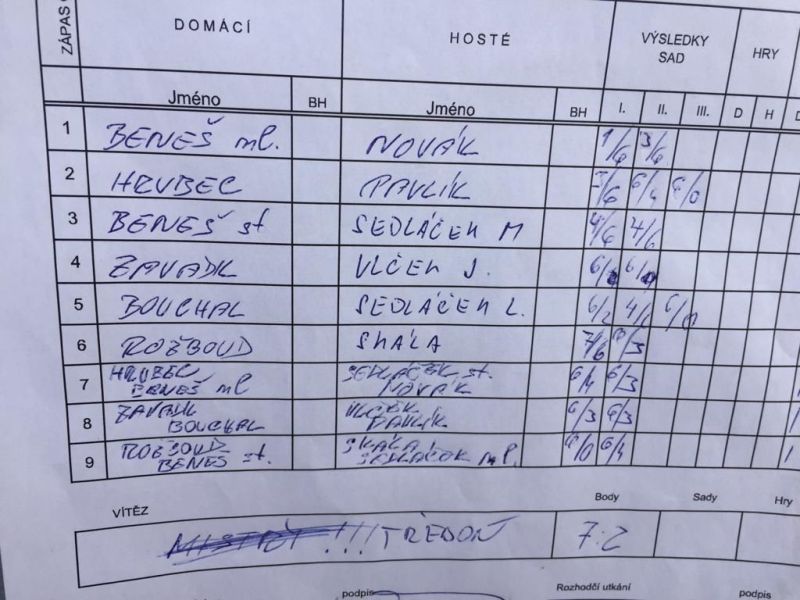 ZÁPAS
DOMÁCÍ HOSTÉ VÝSLEDKY SAD HRY
Jméno BH Jméno BH I. II. III. D H
1 BENEŠ ml. NOVÁK 1/6 3/6
2 HRUBEC PAVLÍK 6/4 6/0
3 BENEŠ st SEDLÁČEK M 4/6 4/6
4 ZAVADIL VLČEK J.
5 BOUCHAL SEDLÁČEK L. 6/2 6/0
6 ROŽBOUD SKÁLA 7/6 6/3
7 HRUBEC SEDLÁČEK st. 6/4 6/3
BENEŠ ml NOVÁK
8 ZAVADIL VLČEK 6/3 6/3
BOUCHAL PAVLÍK
9 ROŽBOUD SKÁLA 6/0 6/4
BENEŠ st. SEDLÁČEK ml.
VÍTĚZ Body Sady Hry
!!! TŘEBOŇ 7:2
podpis Rozhodčí utkání podpis